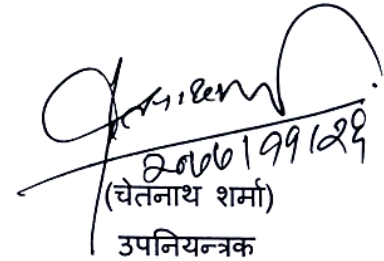 २०७७।११।२६
(चेतनाथ शर्मा)
उपनियन्त्रक